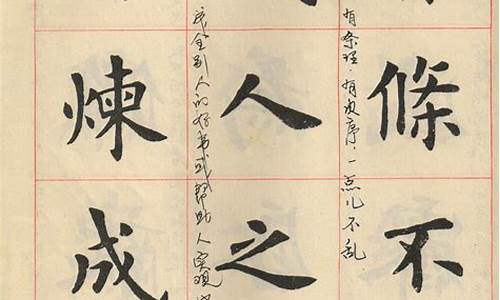 條不
有条理,有次序,一点儿不乱
人之
成全别人的好事或帮助人实现
煉成